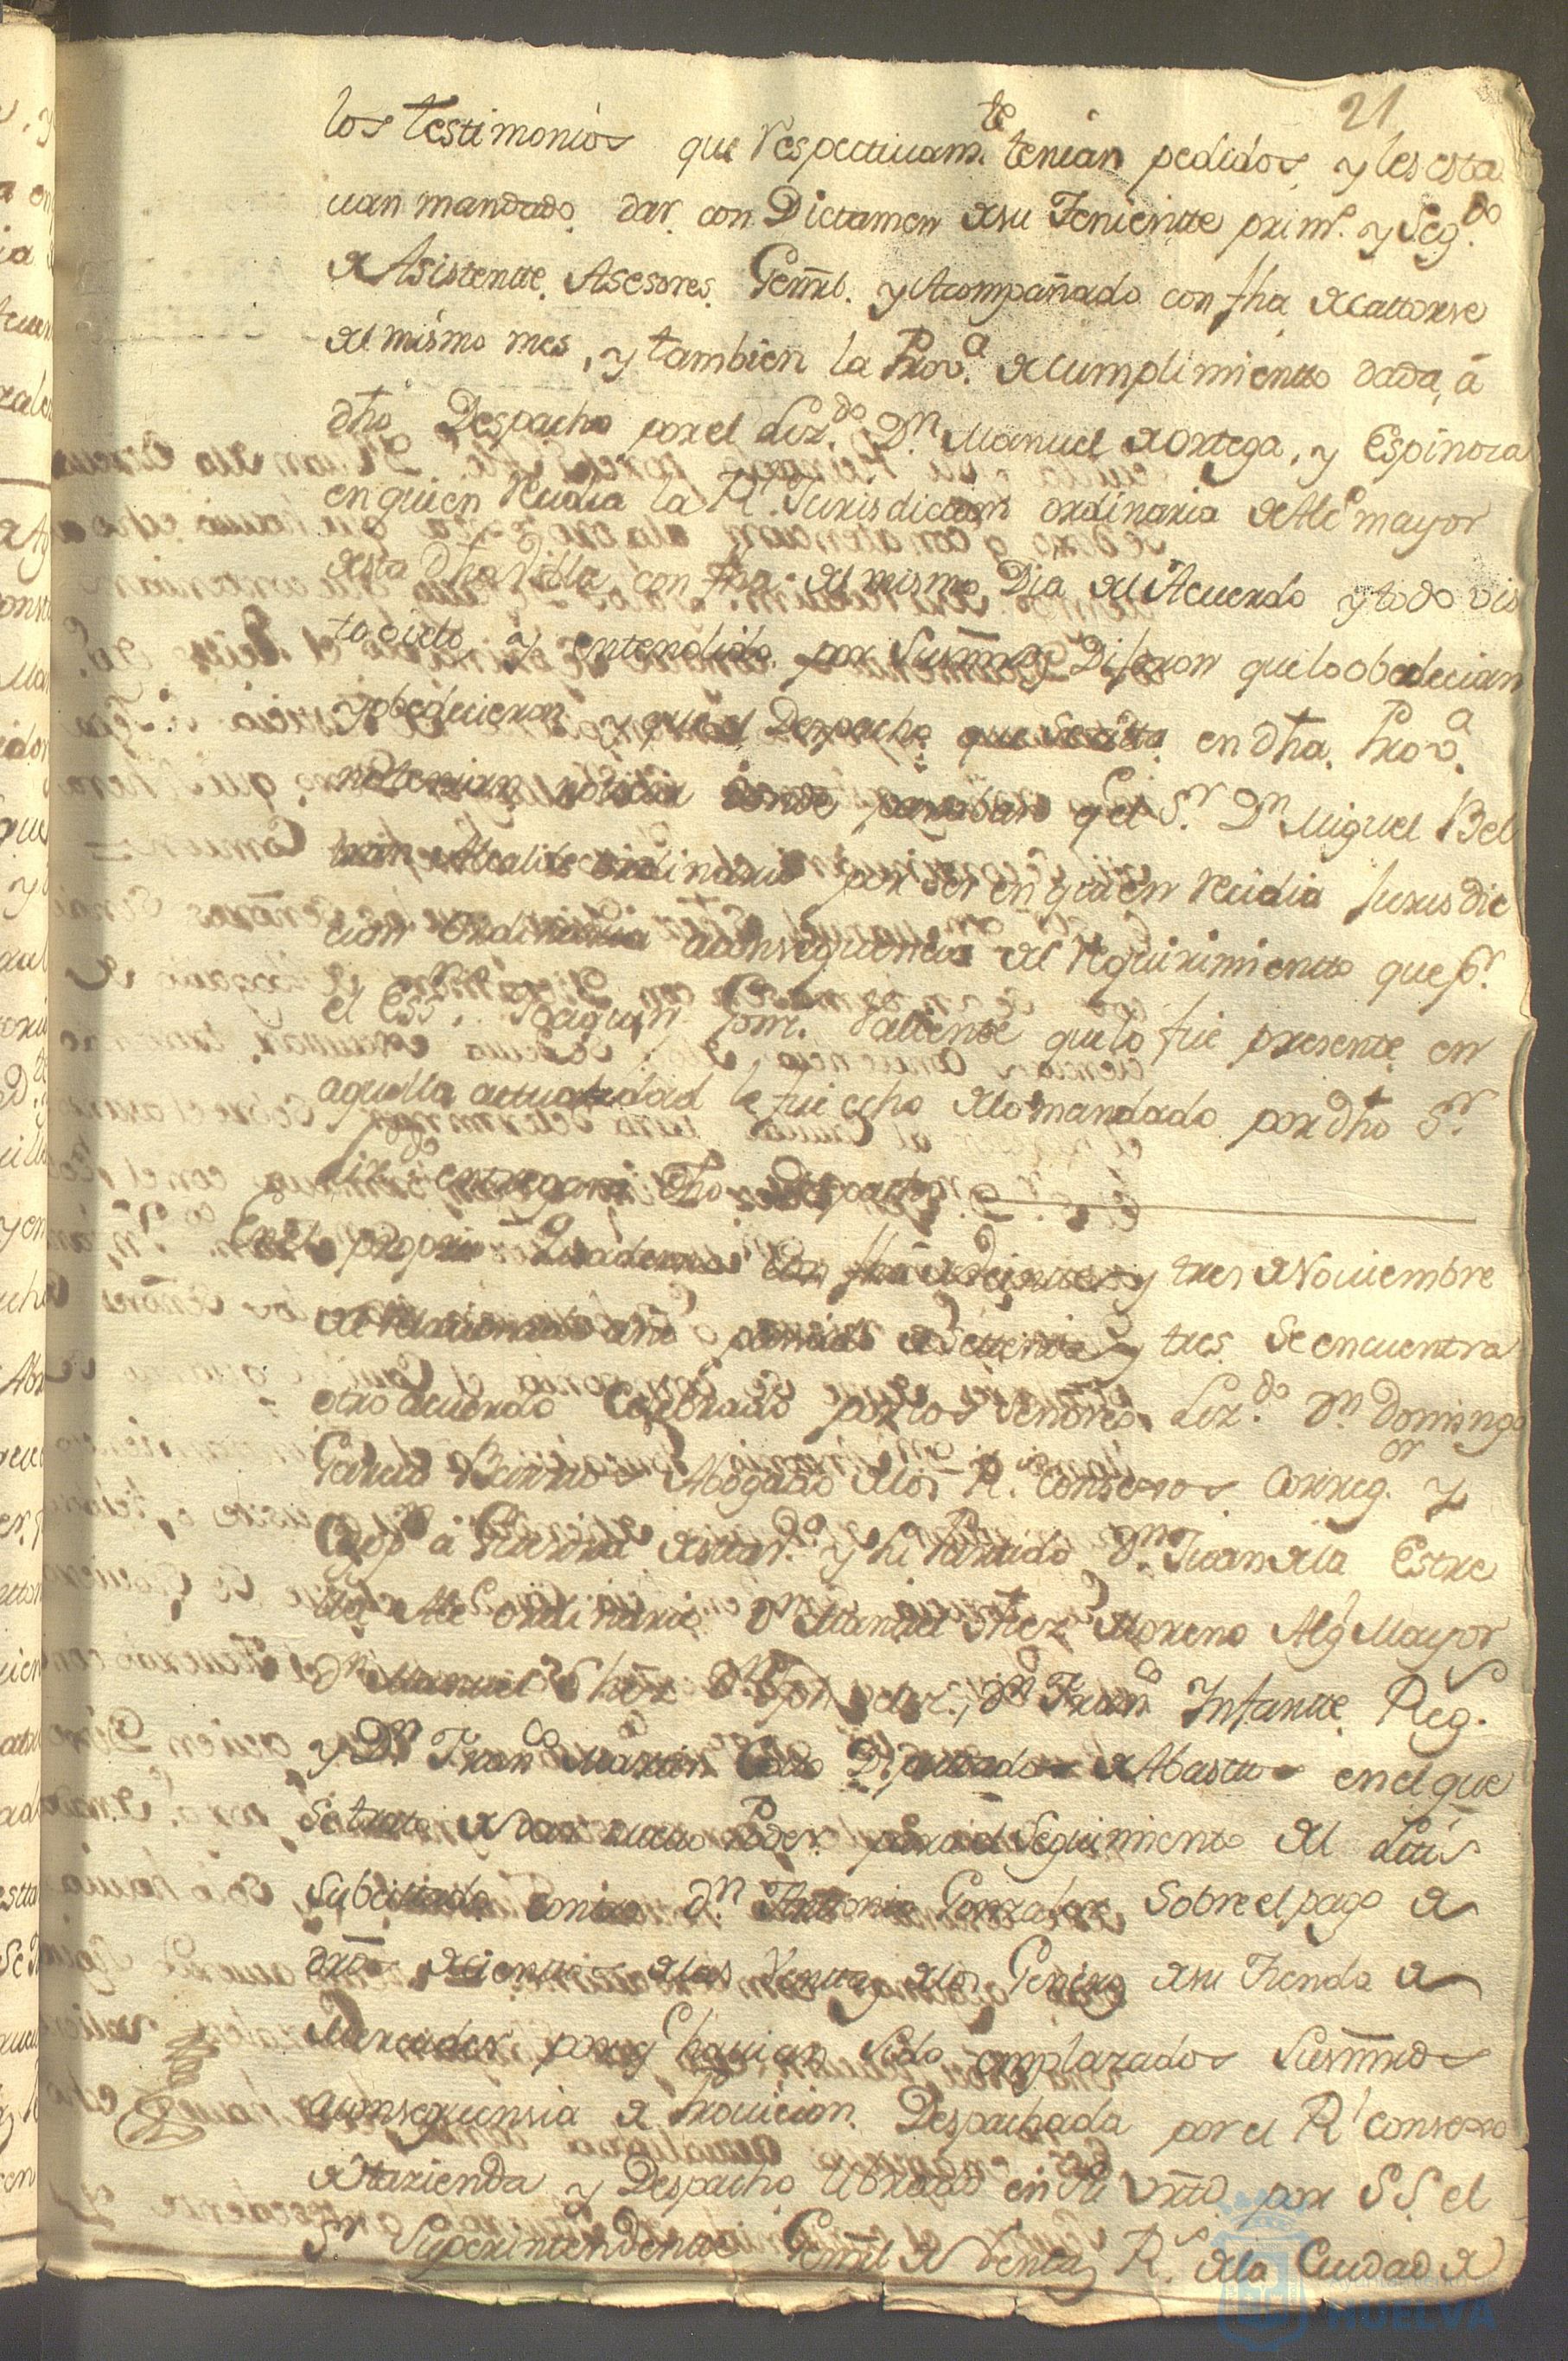 21
los testimonios que respectiuam.te tenian pedidos, y les esta
uan mandado dar con Dictamen de su Teniente prim.o y Seg.do
de Asistente, Asesores Genrl. y Acompañado con fha de cattorse
del mismo mes, y tambien la Prov.a de cumplimiento dada, á
dho Despacho por el Liz.do Dn. Manuel de Ortega, y Espinosa
en quien recidia la Rl. Jurisdiccion ordinaria de Alce. mayor
de esta dha Villa con fha del mismo Dia del Acuerdo y todo vis
to oido, y entendido por Susmrds Dijeron que lo obedecian
y obedecieron, y que el Despacho que se citta en dha Prov.a
no tenian noticia donde paraba y el Sr. Dn. Miguel Bel
tran Alcalde ordinario por ser en quien recidia Jurisdic
cion Ordinaria aconsequencia del requirimiento que pr.
el Essno. Joaquin Valiente que lo fue presente en
aquella actualidad le fue echo de lo mandado por dho Sr.
Liz.do entregara dho Despacho
En el propio Quaderno con fha de veinte y tres de Nouiembre
de relacionado año pasado de Setenta y tres se encuentra
otro acuerdo Celebrado por los Señores Liz.do Dn. Domingo
Garcia Barrios Abogado de los Rs. Consexos Correg.or y
Cap.n a Guerra de esta V.a y su Partido Dn. Juan de la Estre
lla Alce ordinario Dn Manuel Shez Moreno Alg.l Mayor
Dn. Manuel Shez Dn. Fran.co Infante Reg.s
y Dn. Fran.co Martin Coto Diputados de Abastos en el que
se trato de dar nueuo Poder para el Seguimiento del Litis
subcittado contra Dn. Anttonio Gonzalez Sobre el pago de
dros de cientos de las Ventas de los Generos de su Tienda de
Mercader por q hauian sido emplazados Susmrds
aconsequensia de Prouicion Despachada por el Rl. Consexo
de Hazienda y Despacho librado en su Vrtd por S S el
Sr. Superintendente Genrl de Rentas Rs. de la Ciudad de
HUELVA